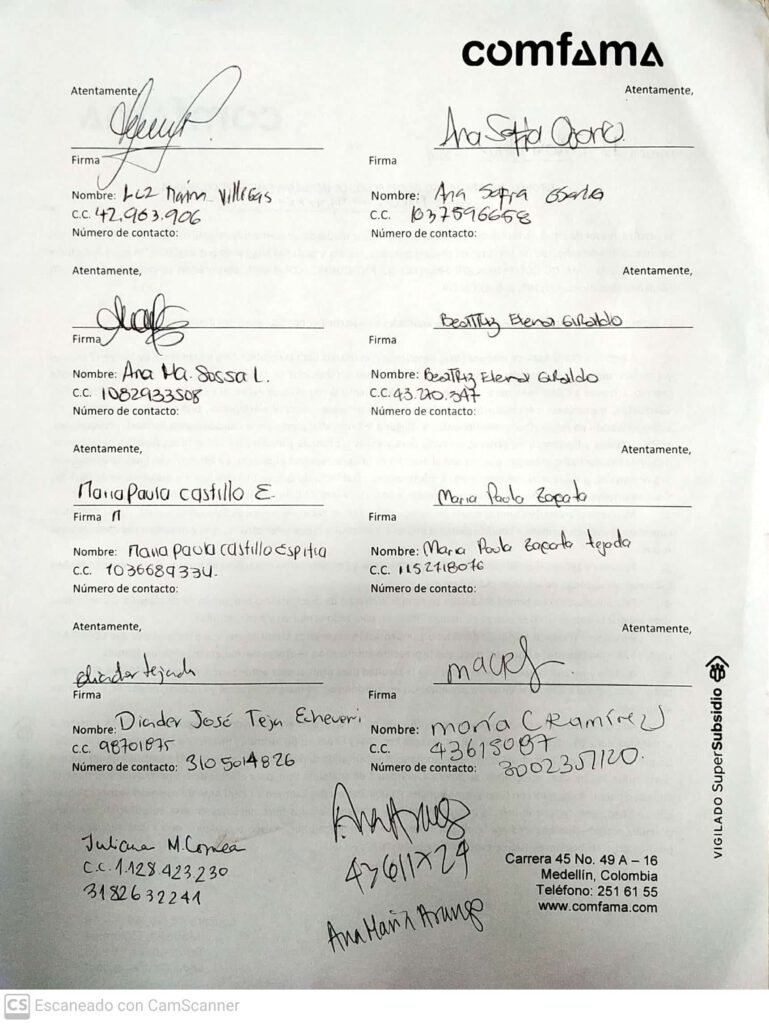 comfama
Atentamente,
Atentamente,
Ana Sofia
Firma
Firma
Nombre: Luz Marina Villegas
Nombre: Ana Sofia Osorio
C.C. 42.963.906
C.C. 1037596658
Número de contacto:
Número de contacto:
Atentamente,
Atentamente,
Beatriz Elena Giraldo
Firma
Firma
Nombre: Ana Ma. Sossa L.
Nombre: Beatriz Elena Giraldo
C.C. 1082933508
C.C. 43.270.347
Número de contacto:
Número de contacto:
Atentamente,
Atentamente,
Maria Paula Castillo E.
Maria Paula Zapata
Firma
Firma
Nombre: Maria Paula Castillo Espitia
Nombre: Maria Paula Zapata Tejada
C.C. 1036689334.
C.C. 1152718076
Número de contacto:
Número de contacto:
Atentamente,
Atentamente,
Firma
Firma
Nombre: José Echeverri
Nombre: María C Ramírez
C.C. 98701875
C.C. 43615087
Número de contacto: 3105014826
Número de contacto: 3002357120.
VIGILADO SuperSubsidio
Ana Arango
Juliana M. Correa
C.C. 1.128.423.230
3182632241
43611724
Ana María Arango
Carrera 45 No. 49 A – 16
Medellín, Colombia
Teléfono: 251 61 55
www.comfama.com
CS Escaneado con CamScanner